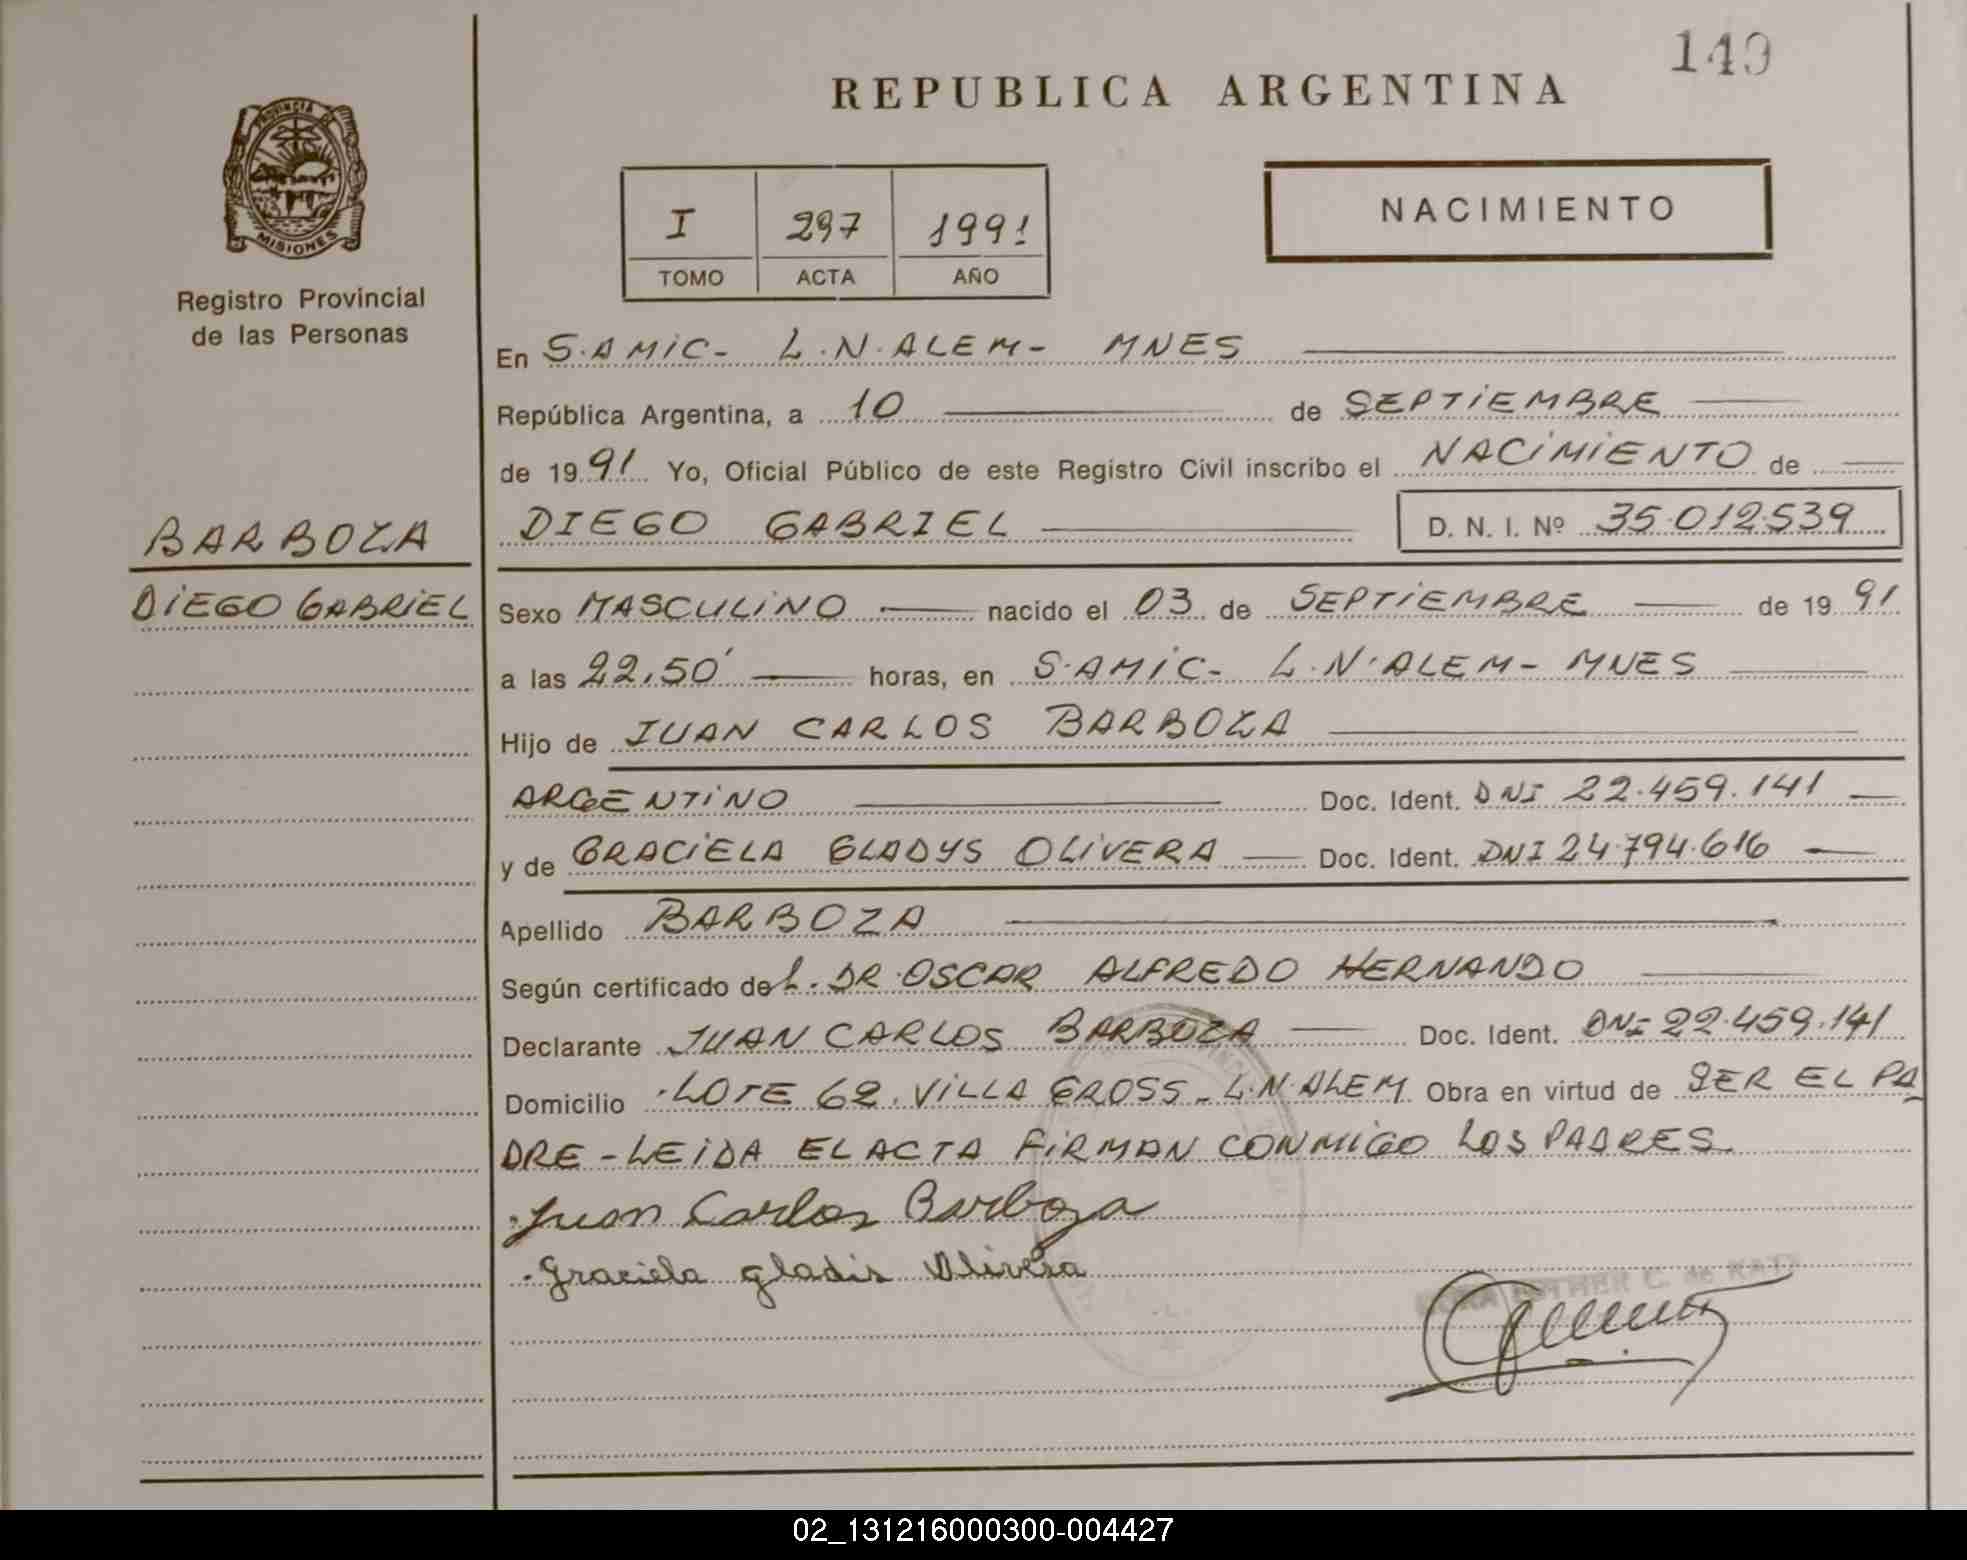 149
REPUBLICA ARGENTINA
PROVINCIA DE
MISIONES
Registro Provincial
de las Personas
I 297 1991
TOMO ACTA AÑO
NACIMIENTO
En S.AMIC- L.N.ALEM- MNES
República Argentina, a 10 de SEPTIEMBRE
de 1991 Yo, Oficial Público de este Registro Civil inscribo el NACIMIENTO de
BARBOZA
DIEGO GABRIEL
DIEGO GABRIEL D. N. I. Nº 35.012.539
Sexo MASCULINO nacido el 03 de SEPTIEMBRE de 1991
a las 22,50' horas, en S.AMIC- L.N.ALEM- MNES
Hijo de JUAN CARLOS BARBOZA
ARGENTINO Doc. Ident. DNI 22.459.141
y de GRACIELA GLADYS OLIVERA Doc. Ident. DNI 24.794.616
Apellido BARBOZA
Según certificado del. DR. OSCAR ALFREDO HERNANDO
Declarante JUAN CARLOS BARBOZA Doc. Ident. DNI 22.459.141
Domicilio LOTE 62. VILLA GROSS- L.N.ALEM. Obra en virtud de SER EL PA
DRE - LEIDA EL ACTA FIRMAN CONMIGO LOS PADRES.
Juan Carlos Barboza
Graciela gladis Olivera
ESTHER C. de
02_131216000300-004427